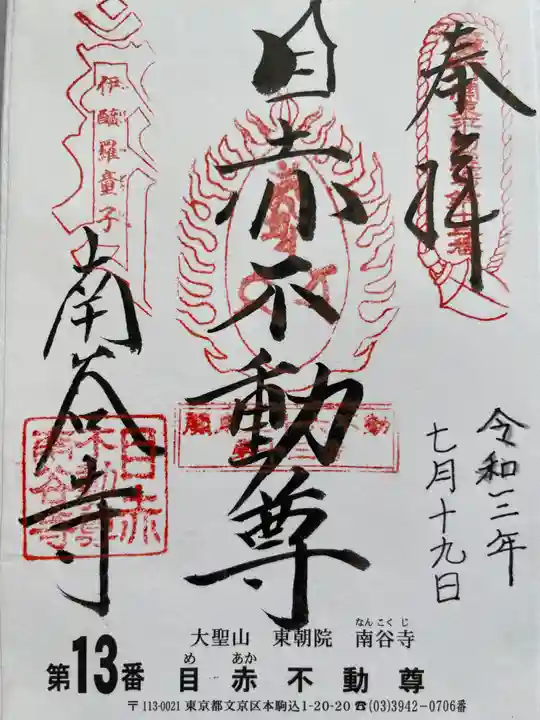 奉拝
令和三年
七月十九日
目赤不動尊
伊醯羅童子
南谷寺
目赤
不動尊
南谷寺
大聖山 東朝院 南谷寺
なんこくじ
第13番 目赤不動尊
め あか
〒113-0021 東京都文京区本駒込1-20-20 ☎(03)3942-0706番